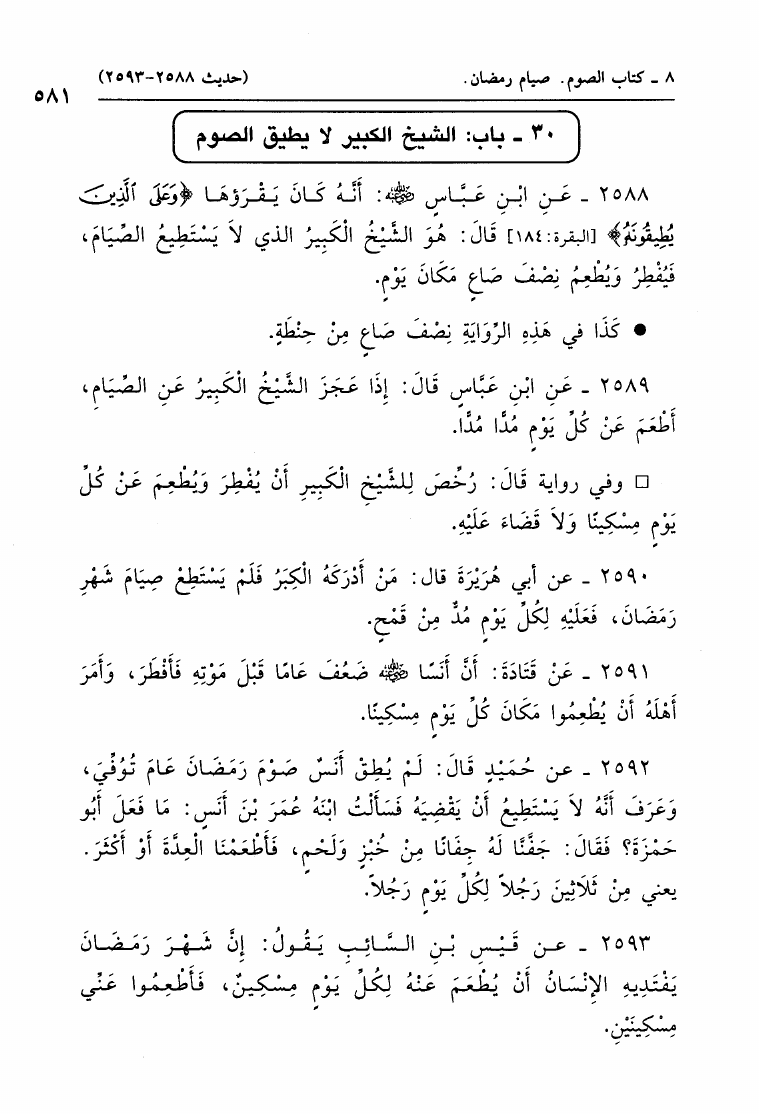 ٨ ـ كتاب الصوم. صيام رمضان. (حديث ٢٥٨٨-٢٥٩٣)
٥٨١
٣٠ ـ باب: الشيخ الكبير لا يطيق الصوم
٢٥٨٨ ـ عَنِ ابْنِ عَبَّاسٍ ﵁: أَنَّهُ كَانَ يَقْرَؤُهَا ﴿وَعَلَى ٱلَّذِينَ
يُطِيقُونَهُ﴾ [البقرة:١٨٤] قَالَ: هُوَ الشَّيْخُ الْكَبِيرُ الذي لاَ يَسْتَطِيعُ الصِّيَامَ،
فَيُفْطِرُ وَيُطْعِمُ نِصْفَ صَاعٍ مَكَانَ يَوْمٍ.
● كَذَا في هَذِهِ الرِّوَايَةِ نِصْفَ صَاعٍ مِنْ حِنْطَةٍ.
٢٥٨٩ ـ عَنِ ابْنِ عَبَّاسٍ قَالَ: إِذَا عَجَزَ الشَّيْخُ الْكَبِيرُ عَنِ الصِّيَامِ،
أَطْعَمَ عَنْ كُلِّ يَوْمٍ مُدًّا مُدًّا.
□ وفي رواية قَالَ: رُخِّصَ لِلشَّيْخِ الْكَبِيرِ أَنْ يُفْطِرَ وَيُطْعِمَ عَنْ كُلِّ
يَوْمٍ مِسْكِينًا وَلاَ قَضَاءَ عَلَيْهِ.
٢٥٩٠ ـ عن أبي هُرَيْرَةَ قال: مَنْ أَدْرَكَهُ الْكِبَرُ فَلَمْ يَسْتَطِعْ صِيَامَ شَهْرِ
رَمَضَانَ، فَعَلَيْهِ لِكُلِّ يَوْمٍ مُدٌّ مِنْ قَمْحٍ.
٢٥٩١ ـ عَنْ قَتَادَةَ: أَنَّ أَنَسًا ﵁ ضَعُفَ عَامًا قَبْلَ مَوْتِهِ فَأَفْطَرَ، وَأَمَرَ
أَهْلَهُ أَنْ يُطْعِمُوا مَكَانَ كُلِّ يَوْمٍ مِسْكِينًا.
٢٥٩٢ ـ عن حُمَيْدٍ قَالَ: لَمْ يُطِقْ أَنَسٌ صَوْمَ رَمَضَانَ عَامَ تُوُفِّيَ،
وَعَرَفَ أَنَّهُ لاَ يَسْتَطِيعُ أَنْ يَقْضِيَهُ فَسَأَلْتُ ابْنَهُ عُمَرَ بْنَ أَنَسٍ: مَا فَعَلَ أَبُو
حَمْزَةَ؟ فَقَالَ: جَفَّنَّا لَهُ جِفَانًا مِنْ خُبْزٍ وَلَحْمٍ، فَأَطْعَمْنَا الْعِدَّةَ أَوْ أَكْثَرَ.
يعني مِنْ ثَلاَثِينَ رَجُلاً لِكُلِّ يَوْمٍ رَجُلاً.
٢٥٩٣ ـ عن قَيْسِ بْنِ السَّائِبِ يَقُولُ: إِنَّ شَهْرَ رَمَضَانَ
يَفْتَدِيهِ الإِنْسَانُ أَنْ يُطْعَمَ عَنْهُ لِكُلِّ يَوْمٍ مِسْكِينٌ، فَأَطْعِمُوا عَنِّي
مِسْكِينَيْنِ.